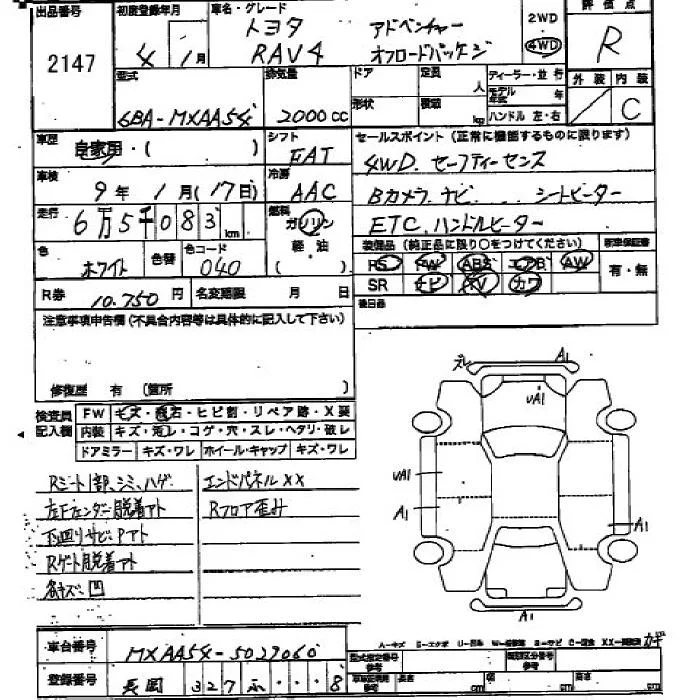 出品番号 初度登録年月 車名・グレード 2WD 評価点
2147 4年 1月 トヨタ RAV4 アドベンチャー オフロードパッケージ 4WD R
型式 排気量 ドア 定員 人 ディーラー・並行 外装 内装
6BA-MXAA54 2000cc 形状 積載 kg モデル年式 年 ハンドル 左・右 C
車歴 自家用・( ) シフト FAT セールスポイント (正常に機能するものに限ります)
4WD.セーフティーセンス
車検 9年 1月(17日) 冷房 AAC Bカメラ.ナビ. シートヒーター
走行 6万5千083km 燃料 ガソリン 軽油 ( ) ETC.ハンドルヒーター
色 ホワイト 色替 色コード 040 装備品 (純正品に限り○をつけてください) 新車保証書
PS PW ABS エアB AW 有・無
SR ナビ TV カワ
R券 10.750円 名変期限 月 日 後日品
注意事項申告欄(不具合内容等は具体的に記入して下さい)
修復歴 有 (箇所 )
検査員記入欄 FW キズ・飛石・ヒビ割・リペア跡・X要
内装 キズ・汚レ・コゲ・穴・スレ・ヘタリ・破レ
ドアミラー キズ・ワレ ホイール・キャップ キズ・ワレ
Rシート1部、シミ、ハゲ エンドパネルXX
左Fフェンダー脱着アト Rフロア歪み
下廻りサビ・Pアト
Rゲート脱着アト
各キズ・凹
スレ A1
UA1
UA1
A1 A1
A1
A-キズ
車台番号 MXAA54-5027060 型式指定番号 参考 類別区分番号 参考 カギ
登録番号 長岡 327 ふ ・・・8 長さ cm 幅 cm 高さ cm